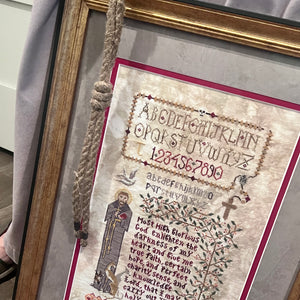 ABCDEFGHIJKLMN
OPQRSTUVWXYZ
1234567890
abcdefghijklmno
pqrstuvwxyz
Most High Glorious
God Enlighten the
darkness of my
heart and Give me
true faith, certain
hope, and perfect
charity, sense and
Lord, that I may